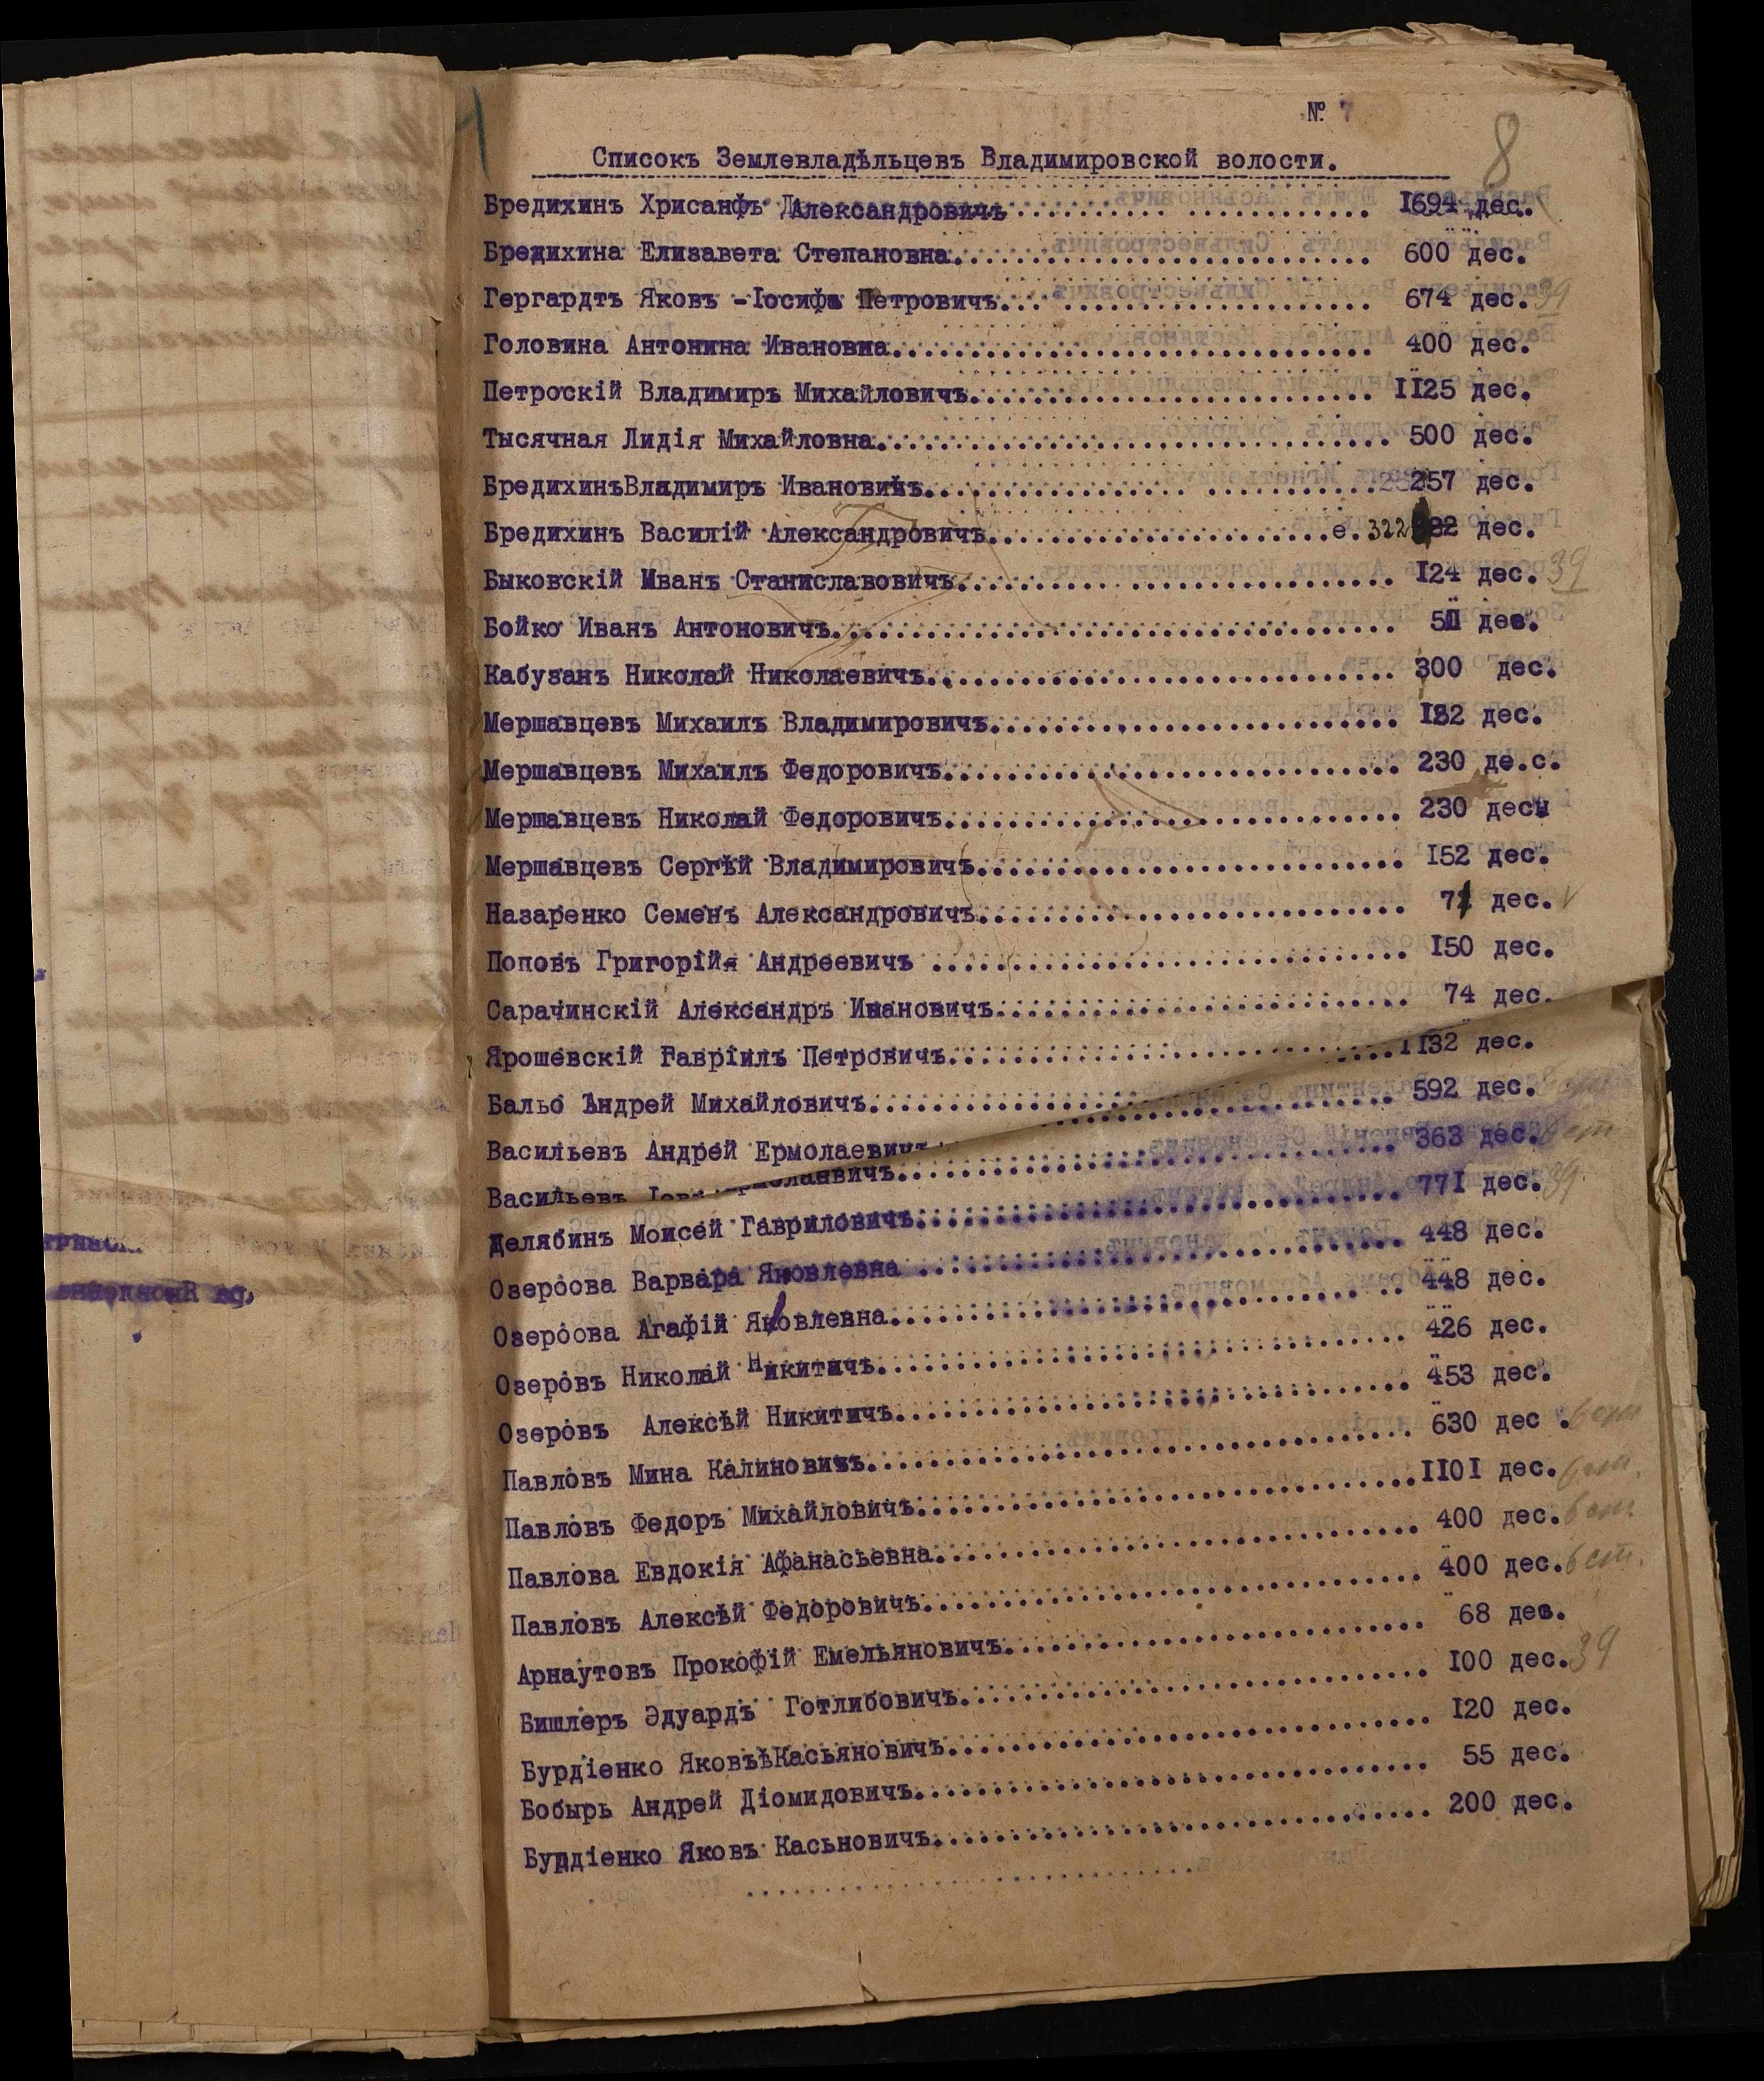 № 7
8
Списокъ Землевладѣльцевъ Владимировской волости.
Бредихинъ Хрисанфъ Александровичъ........................ 1694 дес.
Бредихина Елизавета Степановна........................... 600 дес.
Гергардтъ Яковъ -Іосифъ Петровичъ........................ 674 дес. 39
Головина Антонина Ивановна............................... 400 дес.
Петроскій Владимиръ Михайловичъ.......................... 1125 дес.
Тысячная Лидія Михайловна................................ 500 дес.
БредихинъВладимиръ Ивановичъ............................. 257 дес.
Бредихинъ Василій Александровичъ......................е. 322 дес.
Быковскій Иванъ Станиславовичъ........................... 124 дес. 39
Бойко Иванъ Антоновичъ................................... 50 дес.
Кабузанъ Николай Николаевичъ............................. 300 дес.
Мершавцевъ Михаилъ Владимировичъ......................... 182 дес.
Мершавцевъ Михаилъ Федоровичъ............................ 230 де.с.
Мершавцевъ Николай Федоровичъ............................ 230 десн
Мершавцевъ Сергѣй Владимировичъ.......................... 152 дес.
Назаренко Семенъ Александровичъ.......................... 71 дес. √
Поповъ Григорій Андреевичъ .............................. 150 дес.
Сарачинскій Александръ Ивановичъ......................... 74 дес.
Ярошевскій Гавріилъ Петровичъ............................
Бальо Андрей Михайловичъ................................. 1132 дес.
Васильевъ Андрей Ермолаевичъ............................. 592 дес.
Васильевъ Іовъ Ермолаевичъ............................... 363 дес. 6 ст.
Делябинъ Моисей Гавриловичъ.............................. 771 дес. 39
Озероова Варвара Яковлевна .............................. 448 дес.
Озероова Агафій Яковлевна................................ 448 дес.
Озеровъ Николай Никитичъ................................. 426 дес.
Озеровъ Алексѣй Никитичъ................................. 453 дес.
Павловъ Мина Калиновичъ.................................. 630 дес . 6 ст.
Павловъ Федоръ Михайловичъ............................... 1101 дес. 6 ст.
Павлова Евдокія Афанасьевна.............................. 400 дес. 6 ст.
Павловъ Алексѣй Федоровичъ............................... 400 дес. 6 ст.
Арнаутовъ Прокофій Емельяновичъ.......................... 68 дес.
Бишлеръ Эдуардъ Готлибовичъ.............................. 100 дес. 39
Бурдіенко ЯковъѣКасьяновичъ.............................. 120 дес.
Бобырь Андрей Діомидовичъ................................ 55 дес.
Бурдіенко Яковъ Касьновичъ............................... 200 дес.